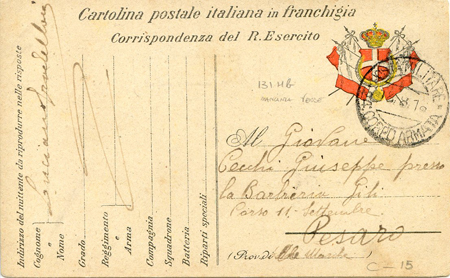 Cartolina postale italiana in franchigia
Corrispondenza del R. Esercito
131 Hb
POSTA MILITARE
CORPO ARMATA
Al Giovane
Cecchi Giuseppe presso
la Barbieria Gili
Corso 11 Settembre
Pesaro
(Prov. di Marche
C-15
Indirizzo del mittente da riprodurre nelle risposte
Cognome e Nome
Grado
Reggimento e Arma
Compagnia
Squadrone
Batteria
Riparti speciali